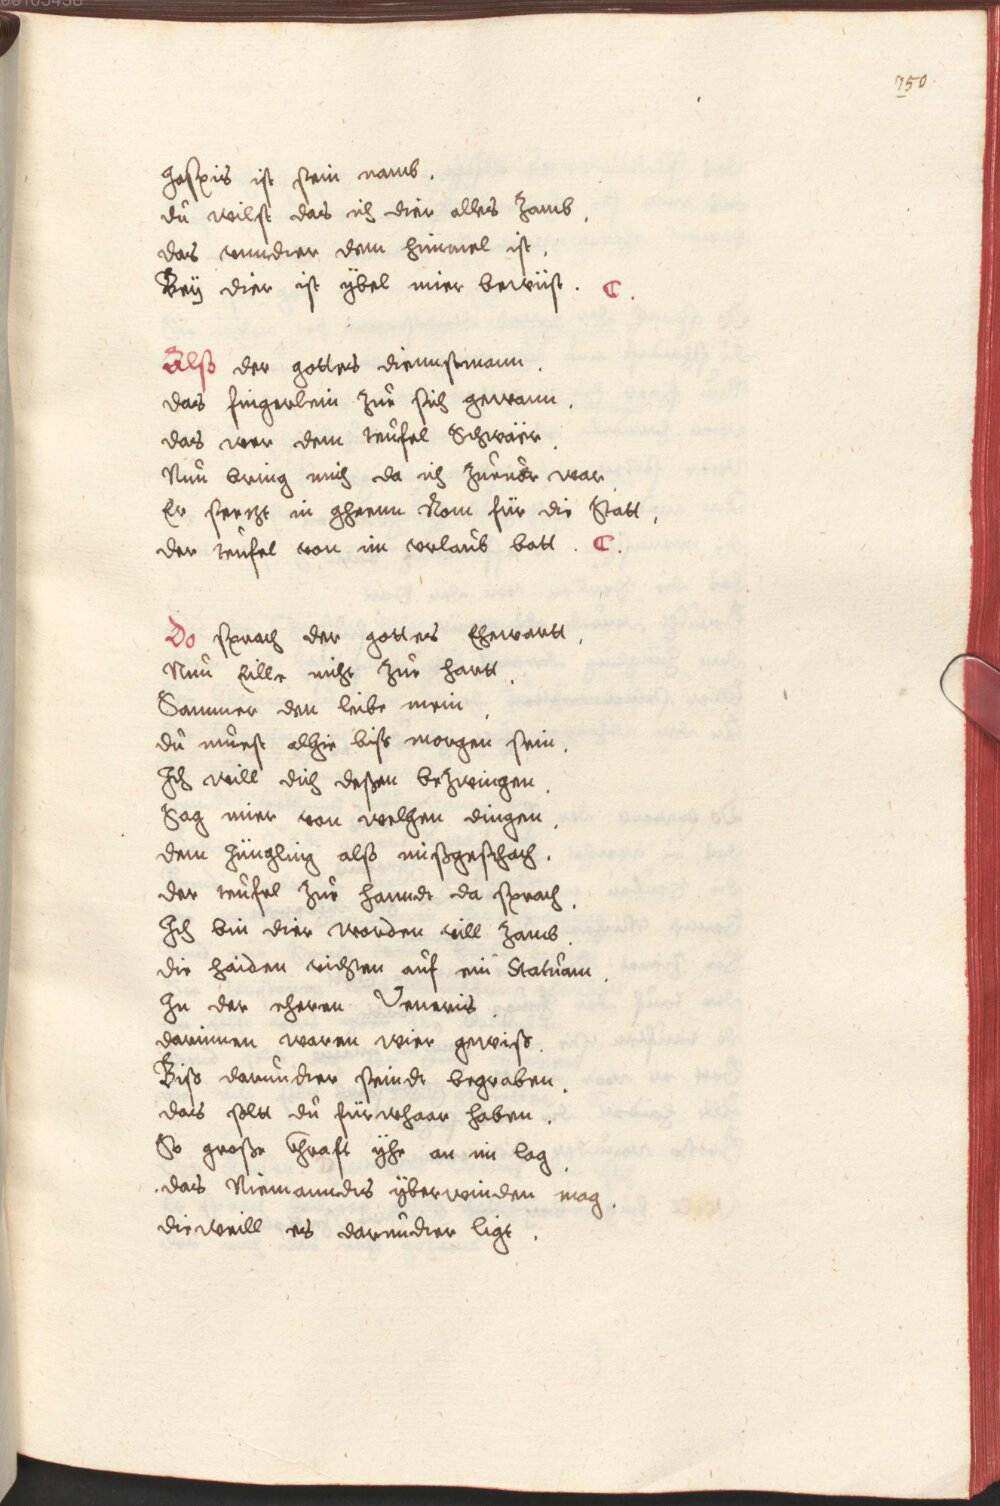 750
Jaspis ist sein namb.
dů wilst das ich dier alles Zamb,
das vnndter dem himmel ist,
Beÿ dier ist ÿbel mier bewüst. C.
Alß der gottes diennstmann.
das fingerlein Zůe sich gewann.
das wer dem teůfel Schwäer.
Nůn bring mich da ich Zůůor war
Er sprcht in ghrenn Rom für die Statt,
der teůfel von im vrlaůb batt. C.
Do sprach der gottes Ehewartt,
Nůn Eille nicht Zůe hartt,
Sammer den leibe mein,
dů můest alhie biß morgen sein.
Ich will dich deßen beZwingen.
Sag mier von welchen dingen,
dem Jüngling alß mißgeschach.
der teůfel Zůe hanndt da sprach,
Ich bin dier worden vill Zamb
die haiden richten aůf ein Statůam.
In der eheren Veneris.
darinnen waren wier gewiß.
Biß darůndter seindt begraben,
das solt dů fürwhaar haben.
So große Chraft ÿhe an im lag
das Niemanndts ÿberwinden mag.
dieweill es darůndter ligt.